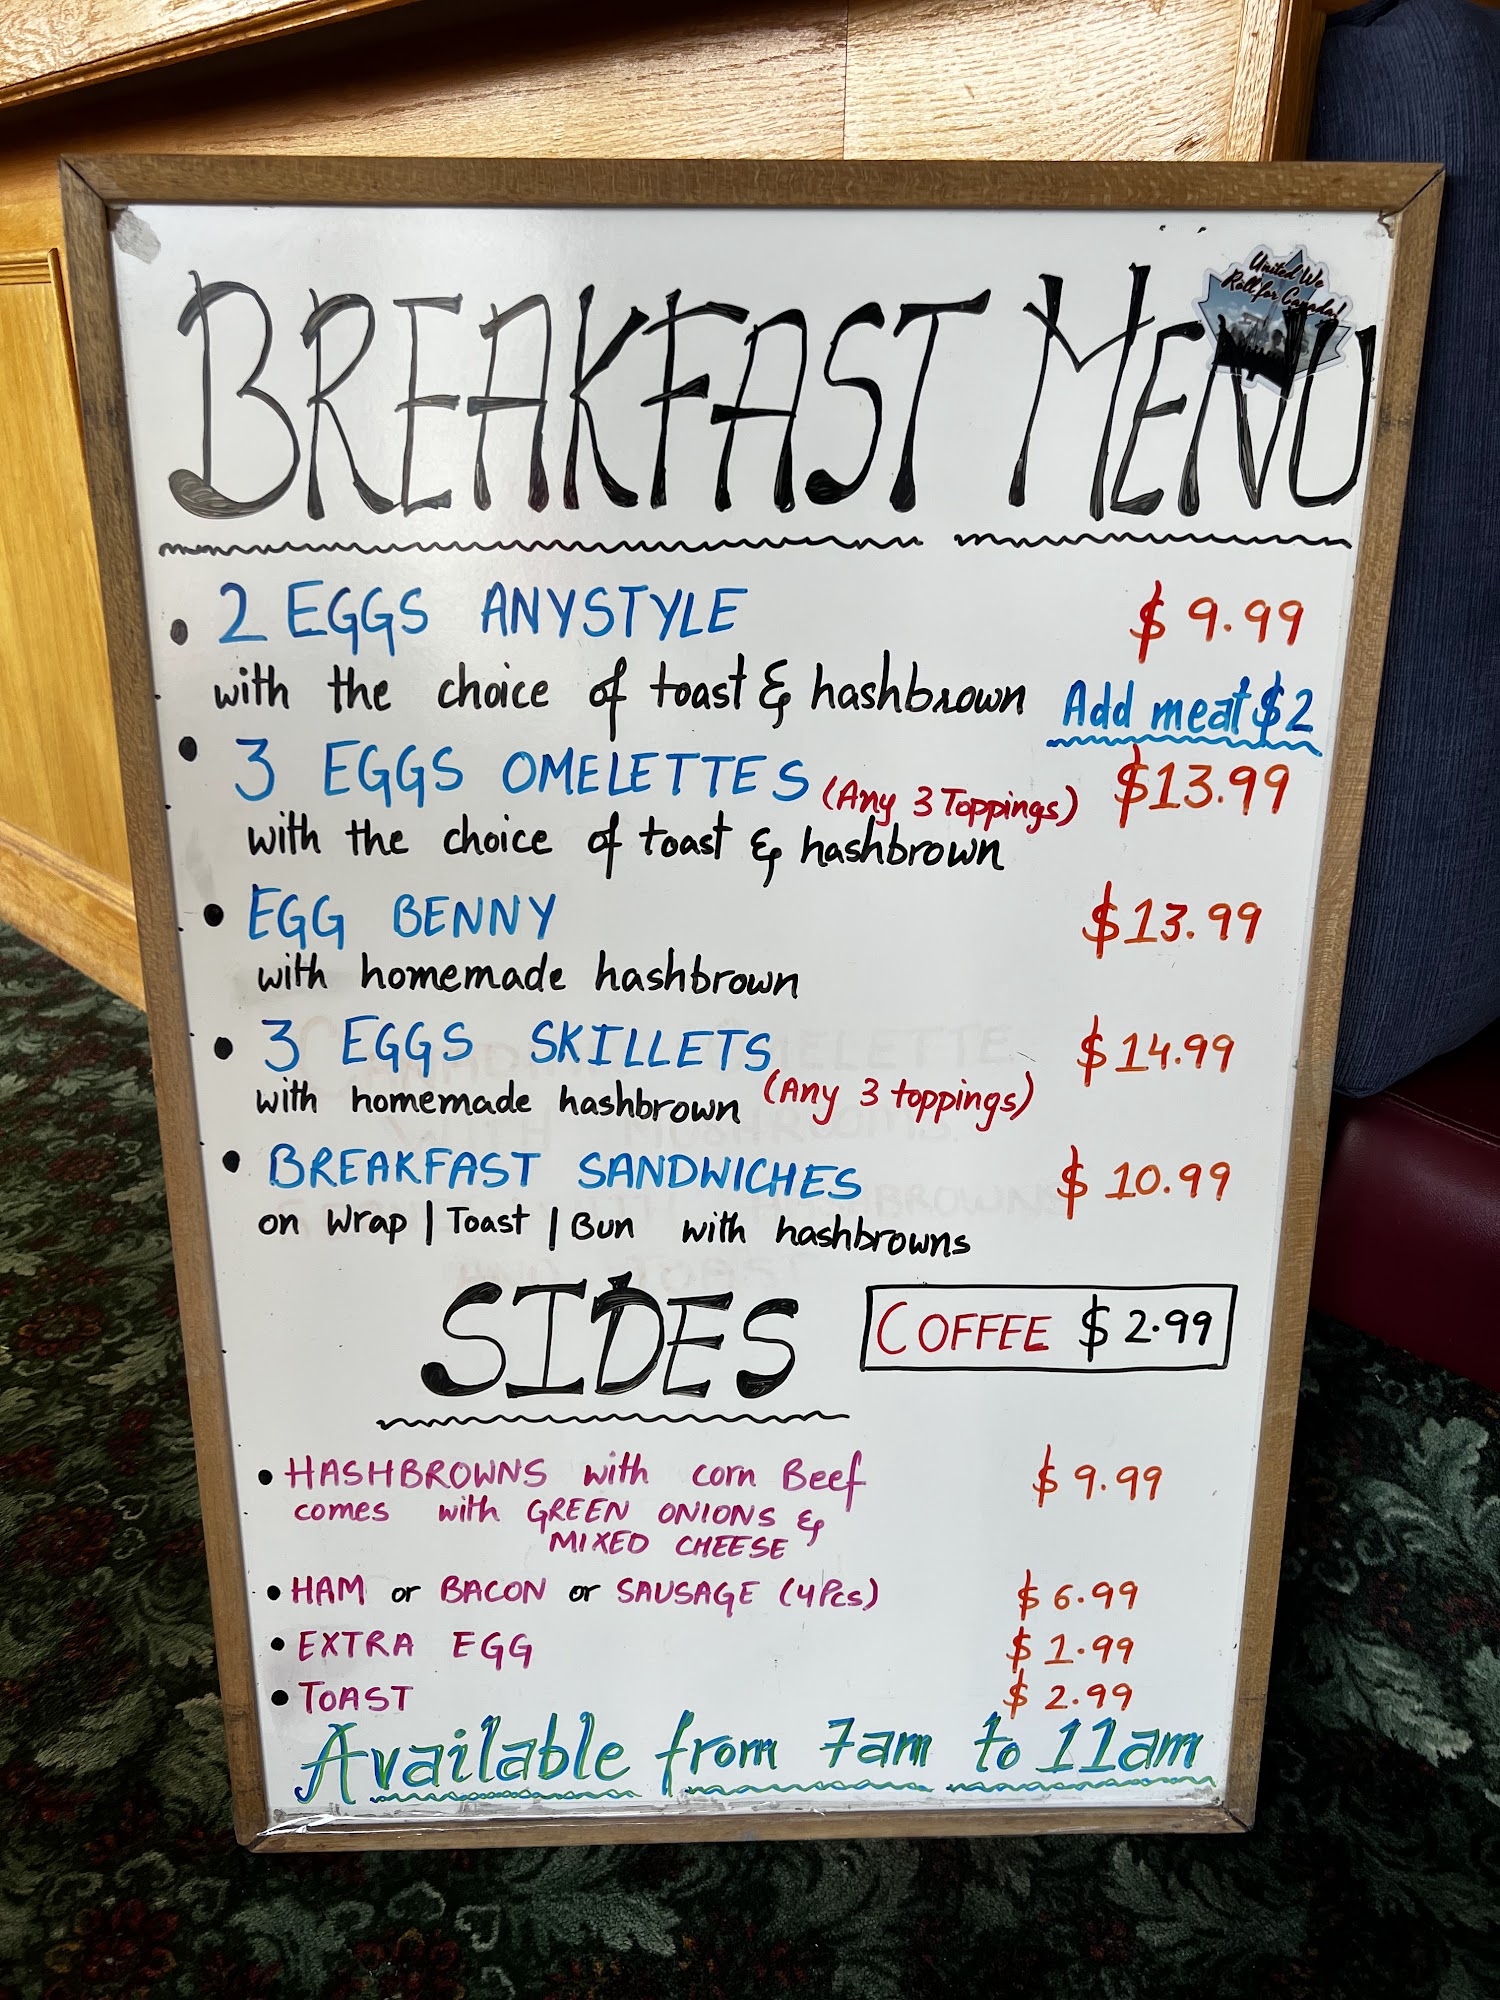 United We
Roll for Canada!
BREAKFAST MENU
• 2 EGGS ANYSTYLE $ 9.99
with the choice of toast & hashbrown Add meat $2
• 3 EGGS OMELETTES (Any 3 Toppings) $13.99
with the choice of toast & hashbrown
• EGG BENNY $13.99
with homemade hashbrown
• 3 EGGS SKILLETS $14.99
with homemade hashbrown (Any 3 toppings)
• BREAKFAST SANDWICHES $ 10.99
on Wrap | Toast | Bun with hashbrowns
SIDES COFFEE $ 2.99
• HASHBROWNS with corn Beef $ 9.99
comes with GREEN ONIONS &
MIXED CHEESE
• HAM or BACON or SAUSAGE (4Pcs) $ 6.99
• EXTRA EGG $ 1.99
• TOAST $ 2.99
Available from 7am to 11am